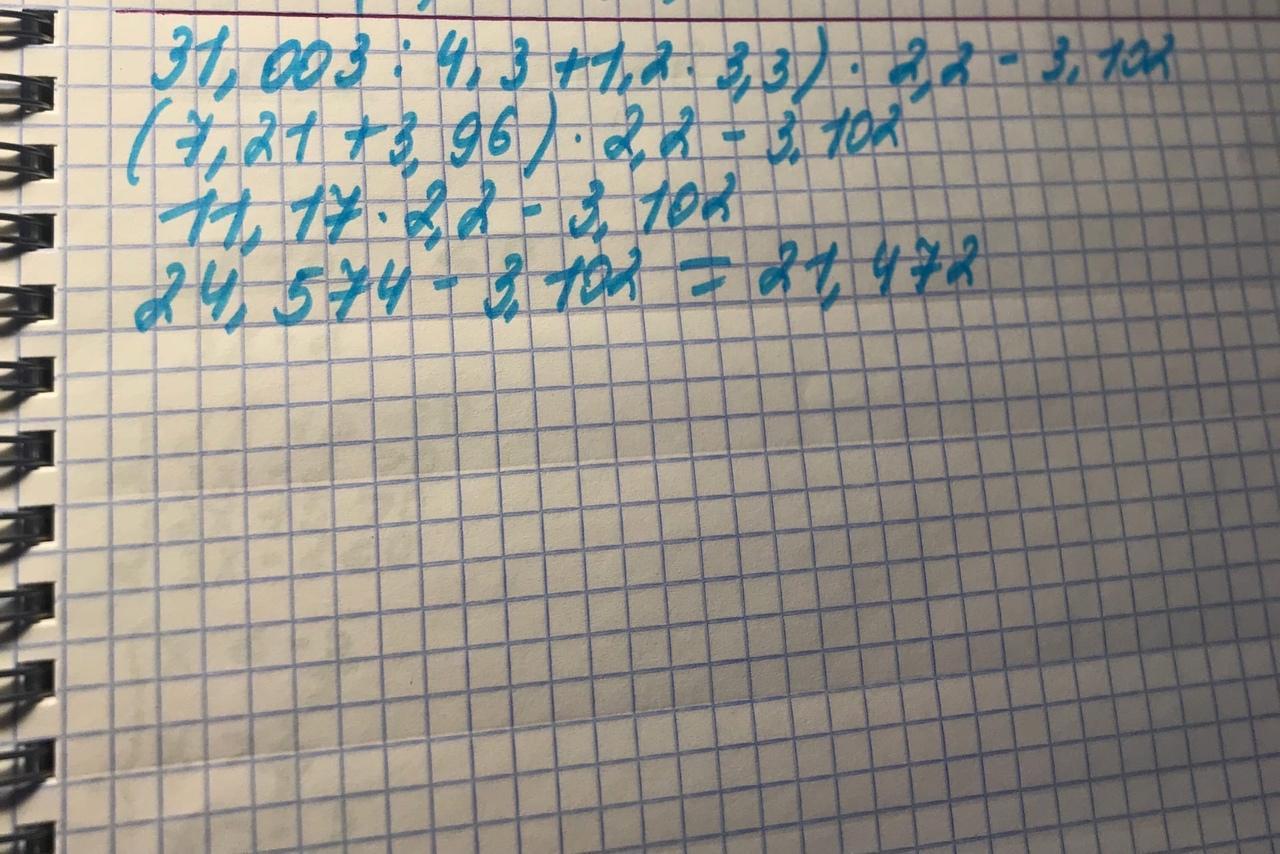 31,003 : 4,3 + 1,2 · 3,3) · 2,2 - 3,102
(7,21 + 3,96) · 2,2 - 3,102
11,17 · 2,2 - 3,102
24,574 - 3,102 = 21,472